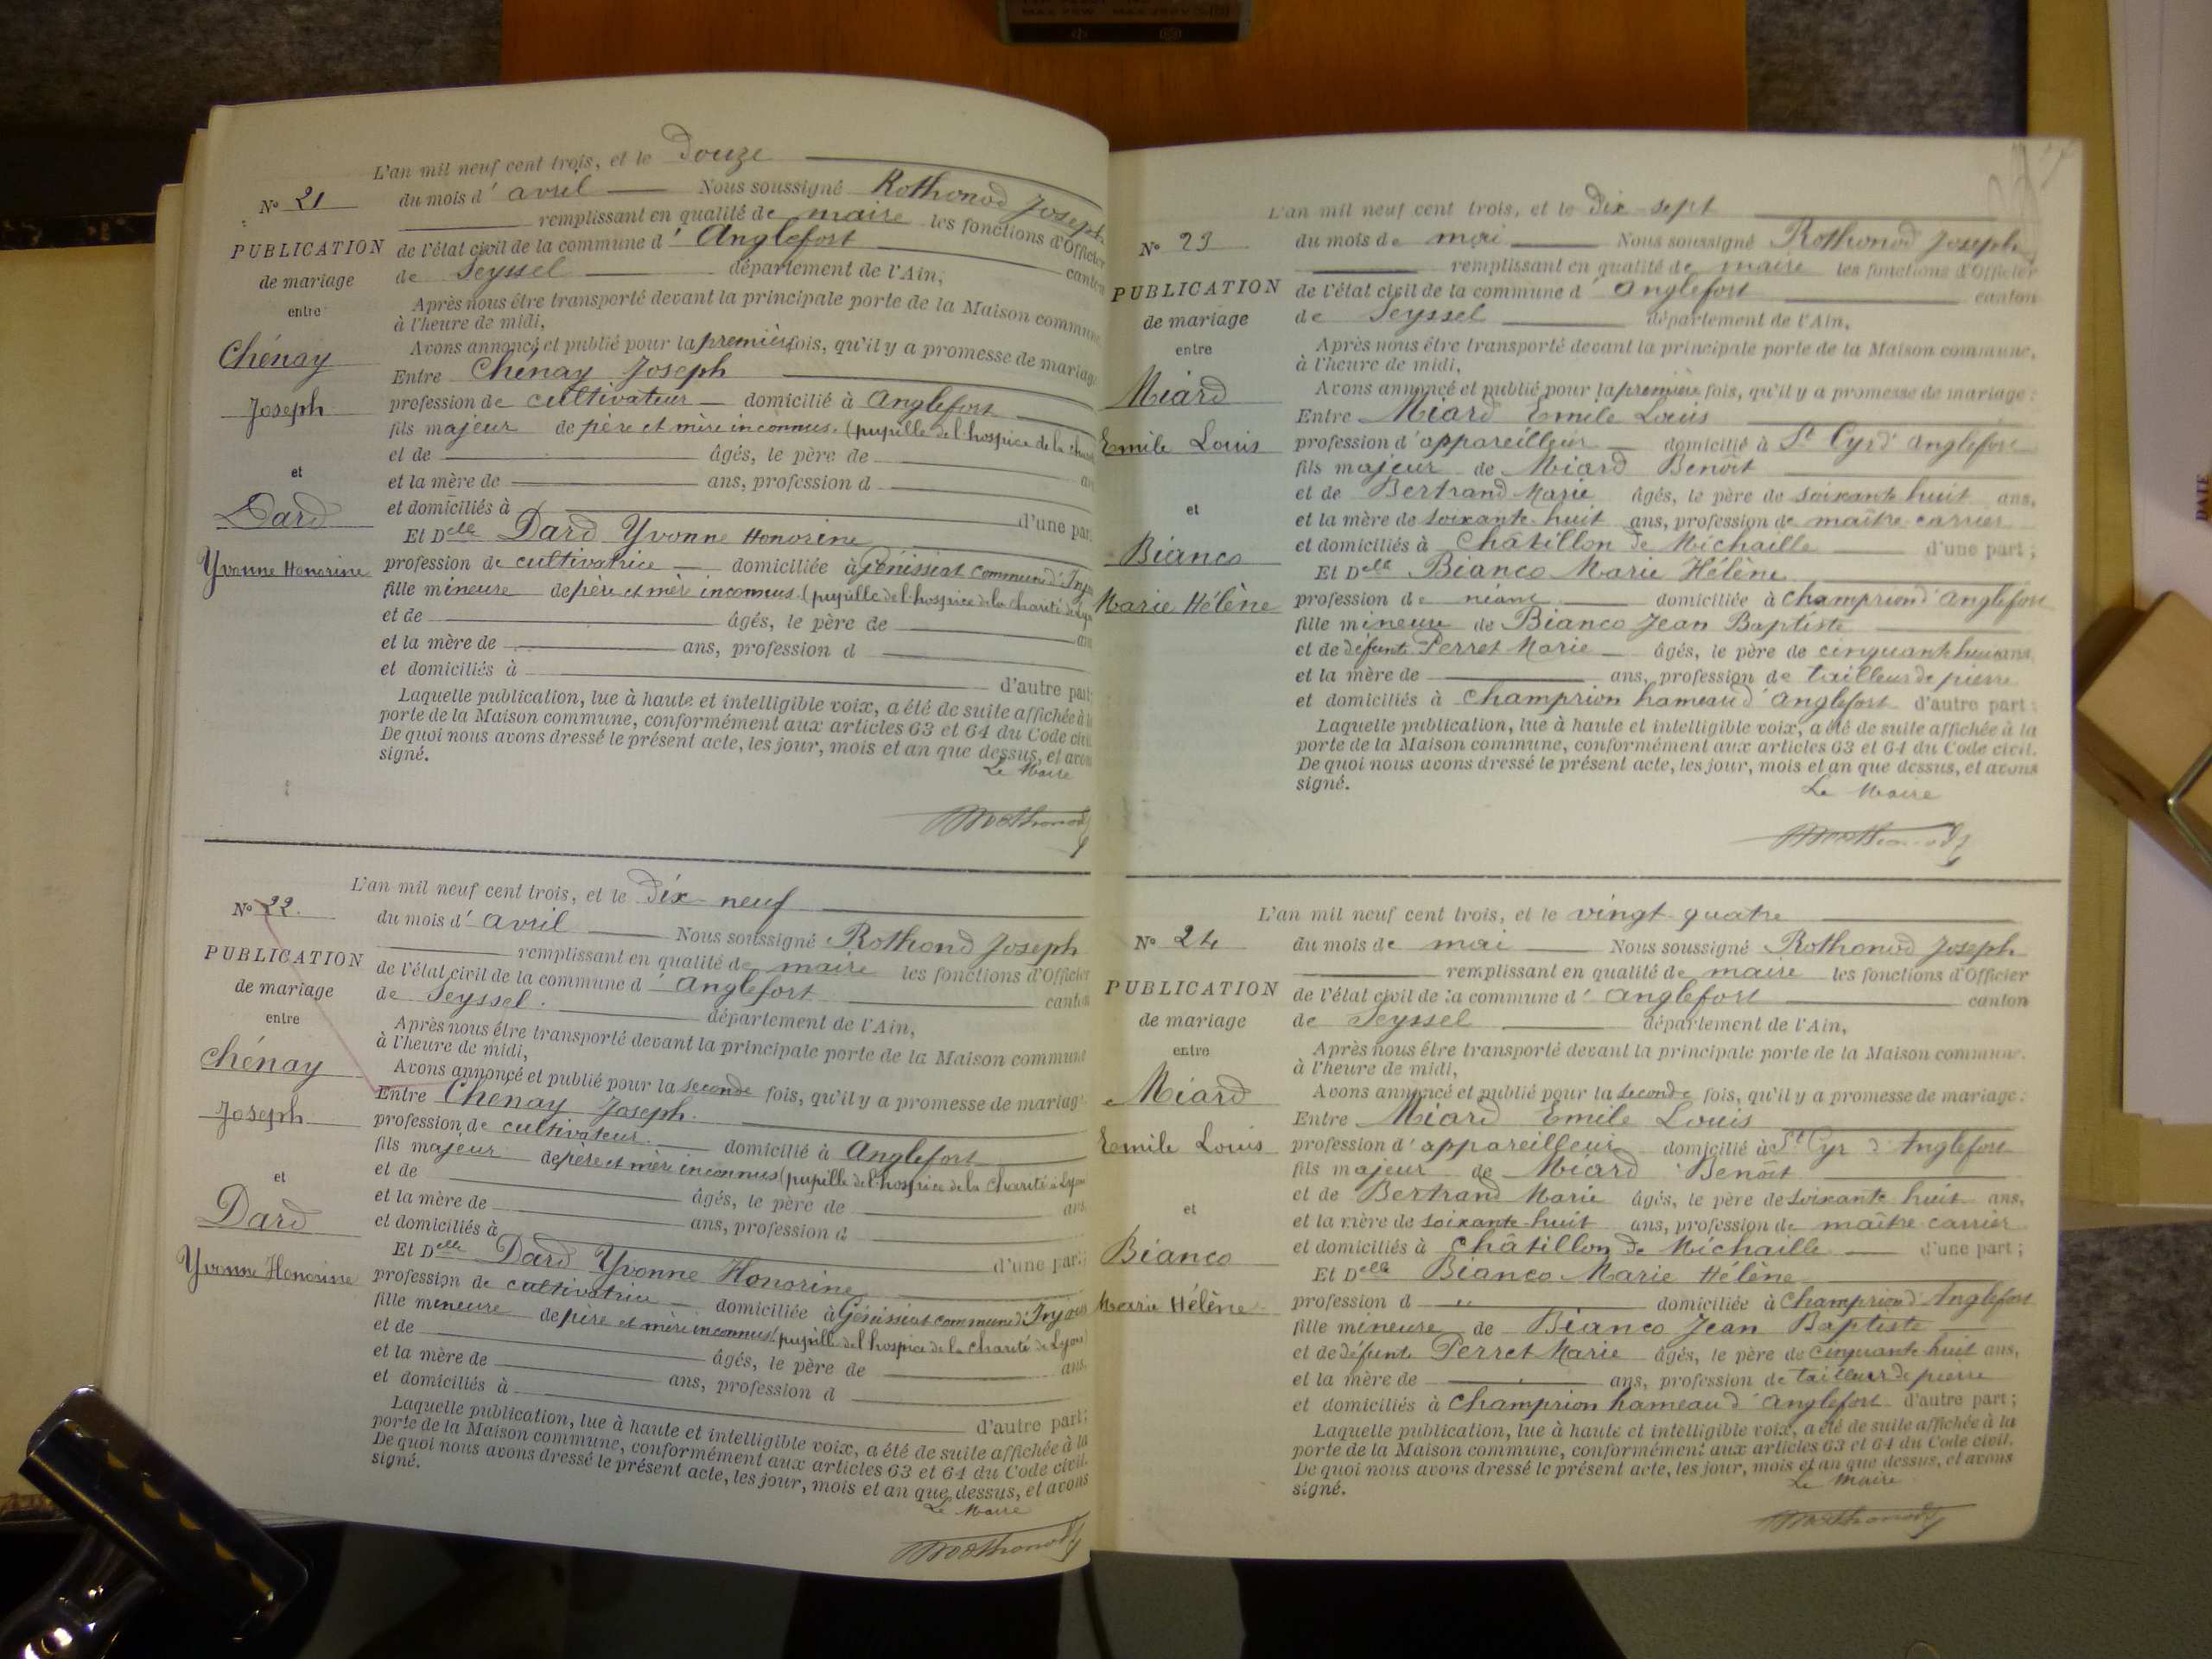 L'an mil neuf cent trois, et le Douze
N° 21
du mois d' avril Nous soussigné Rothonod Joseph
remplissant en qualité de maire les fonctions d'Officier
PUBLICATION
de mariage
entre
Chénay
Joseph
et
Dard
Yvonne Honorine
de l'état civil de la commune d' Anglefort canton
de Seyssel département de l'Ain,
Après nous être transporté devant la principale porte de la Maison commune,
à l'heure de midi,
Avons annoncé et publié pour la première fois, qu'il y a promesse de mariage
Entre Chénay Joseph
profession de cultivateur domicilié à Anglefort
fils majeur de père et mère inconnus. (pupille de l'hospice de la
et de âgés, le père de an
et la mère de ans, profession d
et domiciliés à d'une par
Et Delle Dard Yvonne Honorine
profession de cultivatrice domiciliée à Génissiat commune d'
fille mineure de père et mère inconnus. (pupille de l'hospice de la charité de
et de âgés, le père de an
et la mère de ans, profession d
et domiciliés à d'autre part;
Laquelle publication, lue à haute et intelligible voix, a été de suite affichée à la
porte de la Maison commune, conformément aux articles 63 et 64 du Code civil
De quoi nous avons dressé le présent acte, les jour, mois et an que dessus, et avons
signé.
Le Maire
Rothonod
L'an mil neuf cent trois, et le Dix-neuf
N° 22.
du mois d' avril Nous soussigné Rothond Joseph
remplissant en qualité de maire les fonctions d'Officier
PUBLICATION
de mariage
entre
Chénay
Joseph
et
Dard
Yvonne Honorine
de l'état civil de la commune d' Anglefort canton
de Seyssel. département de l'Ain,
Après nous être transporté devant la principale porte de la Maison commune
à l'heure de midi,
Avons annoncé et publié pour la seconde fois, qu'il y a promesse de mariage
Entre Chénay Joseph.
profession de cultivateur. domicilié à Anglefort
fils majeur de père et mère inconnus (pupille de l'hospice de la Charité à Lyon
et de âgés, le père de ans
et la mère de ans, profession d
et domiciliés à d'une part;
Et Delle Dard Yvonne Honorine
profession de cultivatrice domiciliée à Génissiat commune d'Injoux
fille mineure de père et mère inconnus (pupille de l'hospice de la charité de Lyon
et de âgés, le père de ans
et la mère de ans, profession d
et domiciliés à d'autre part;
Laquelle publication, lue à haute et intelligible voix, a été de suite affichée à la
porte de la Maison commune, conformément aux articles 63 et 64 du Code civil.
De quoi nous avons dressé le présent acte, les jour, mois et an que dessus, et avons
signé.
Le Maire
Rothonod
L'an mil neuf cent trois, et le Dix-sept
N° 23
du mois de mai Nous soussigné Rothonod Joseph
remplissant en qualité de maire les fonctions d'Officier
PUBLICATION
de mariage
entre
Miard
Emile Louis
et
Bianco
Marie Hélène
de l'état civil de la commune d' Anglefort canton
de Seyssel département de l'Ain,
Après nous être transporté devant la principale porte de la Maison commune,
à l'heure de midi,
Avons annoncé et publié pour la première fois, qu'il y a promesse de mariage :
Entre Miard Emile Louis
profession d' appareilleur domicilié à St Cyr d' Anglefort
fils majeur de Miard Benoit
et de Bertrand Marie âgés, le père de soixante huit ans,
et la mère de soixante-huit ans, profession de maître carrier
et domiciliés à Châtillon de Michaille d'une part ;
Et Delle Bianco Marie Hélène
profession de néant domiciliée à Champrion d' Anglefort
fille mineure de Bianco Jean Baptiste
et de défunte Perret Marie âgés, le père de cinquante huit ans,
et la mère de ans, profession de tailleur de pierre
et domiciliés à Champrion hameau d' Anglefort d'autre part ;
Laquelle publication, lue à haute et intelligible voix, a été de suite affichée à la
porte de la Maison commune, conformément aux articles 63 et 64 du Code civil.
De quoi nous avons dressé le présent acte, les jour, mois et an que dessus, et avons
signé.
Le Maire
Rothonod
L'an mil neuf cent trois, et le vingt-quatre
N° 24
du mois de mai Nous soussigné Rothonod Joseph
remplissant en qualité de maire les fonctions d'Officier
PUBLICATION
de mariage
entre
Miard
Emile Louis
et
Bianco
Marie Hélène
de l'état civil de la commune d' Anglefort canton
de Seyssel département de l'Ain,
Après nous être transporté devant la principale porte de la Maison commune,
à l'heure de midi,
Avons annoncé et publié pour la seconde fois, qu'il y a promesse de mariage :
Entre Miard Emile Louis
profession d' appareilleur domicilié à St Cyr d' Anglefort
fils majeur de Miard Benoit
et de Bertrand Marie âgés, le père de soixante huit ans,
et la mère de soixante-huit ans, profession de maître carrier
et domiciliés à Châtillon de Michaille d'une part ;
Et Delle Bianco Marie Hélène
profession d " domiciliée à Champrion d' Anglefort
fille mineure de Bianco Jean Baptiste
et de défunte Perret Marie âgés, le père de cinquante-huit ans,
et la mère de ans, profession de tailleur de pierre
et domiciliés à Champrion hameau d' Anglefort d'autre part ;
Laquelle publication, lue à haute et intelligible voix, a été de suite affichée à la
porte de la Maison commune, conformément aux articles 63 et 64 du Code civil.
De quoi nous avons dressé le présent acte, les jour, mois et an que dessus, et avons
signé.
Le Maire
Rothonod
DATE